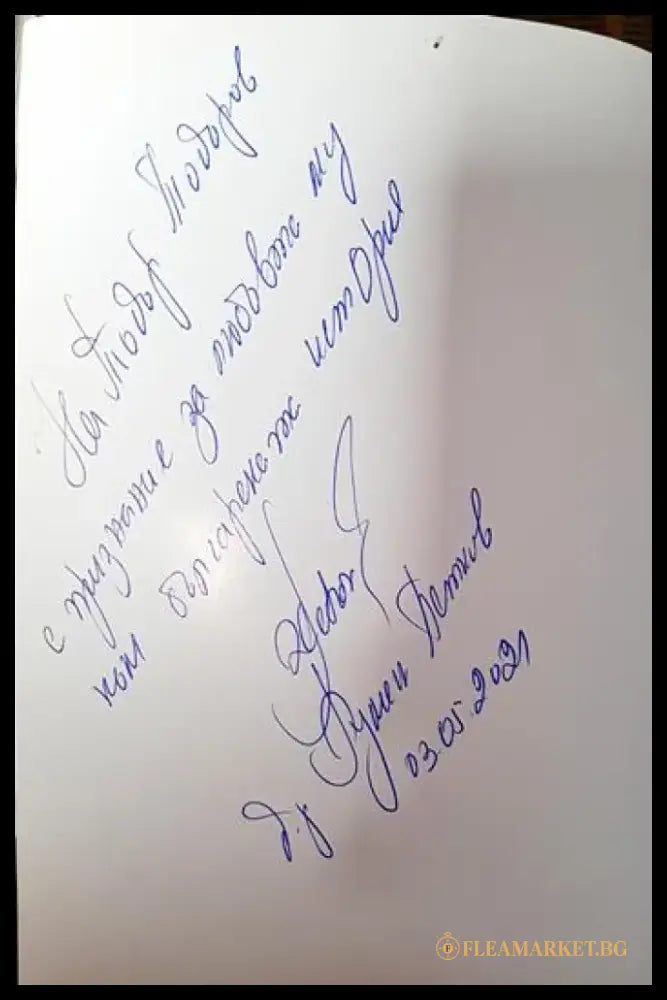 На Тодор Тодоров
с признание за любовта му
към българската история
Автор:
д-р Румен Петков
03.05.2021
FLEAMARKET.BG